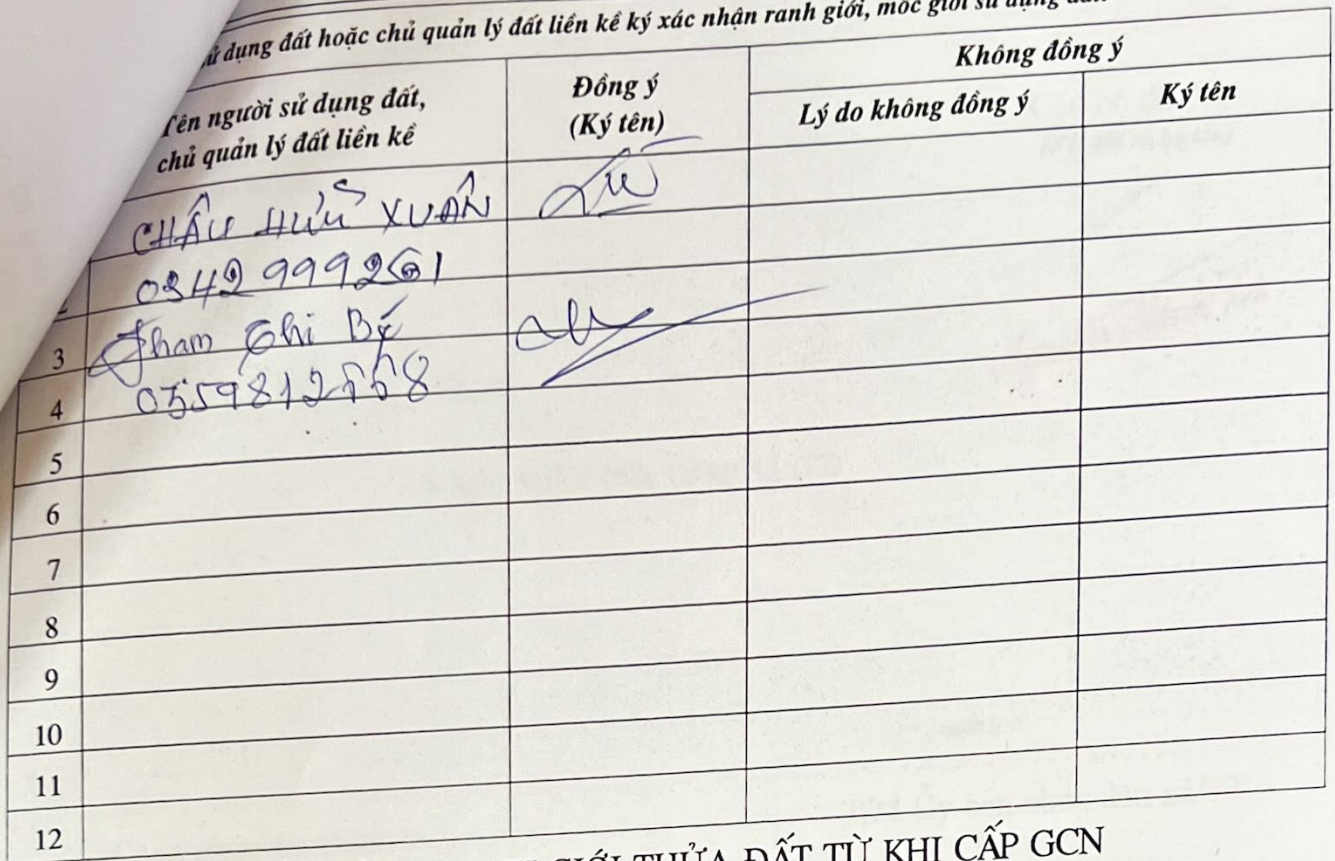 dụng đất hoặc chủ quản lý đất liền kề ký xác nhận ranh giới, mốc giới sử dụng
Tên người sử dụng đất,
chủ quản lý đất liền kề
Đồng ý
(Ký tên)
Không đồng ý
Lý do không đồng ý
Ký tên
CHÂU HỮU XUÂN
0342999261
3 Phạm Thi Bé
4
5
6
7
8
9
10
11
12
GIỚI THỬA ĐẤT TỪ KHI CẤP GCN